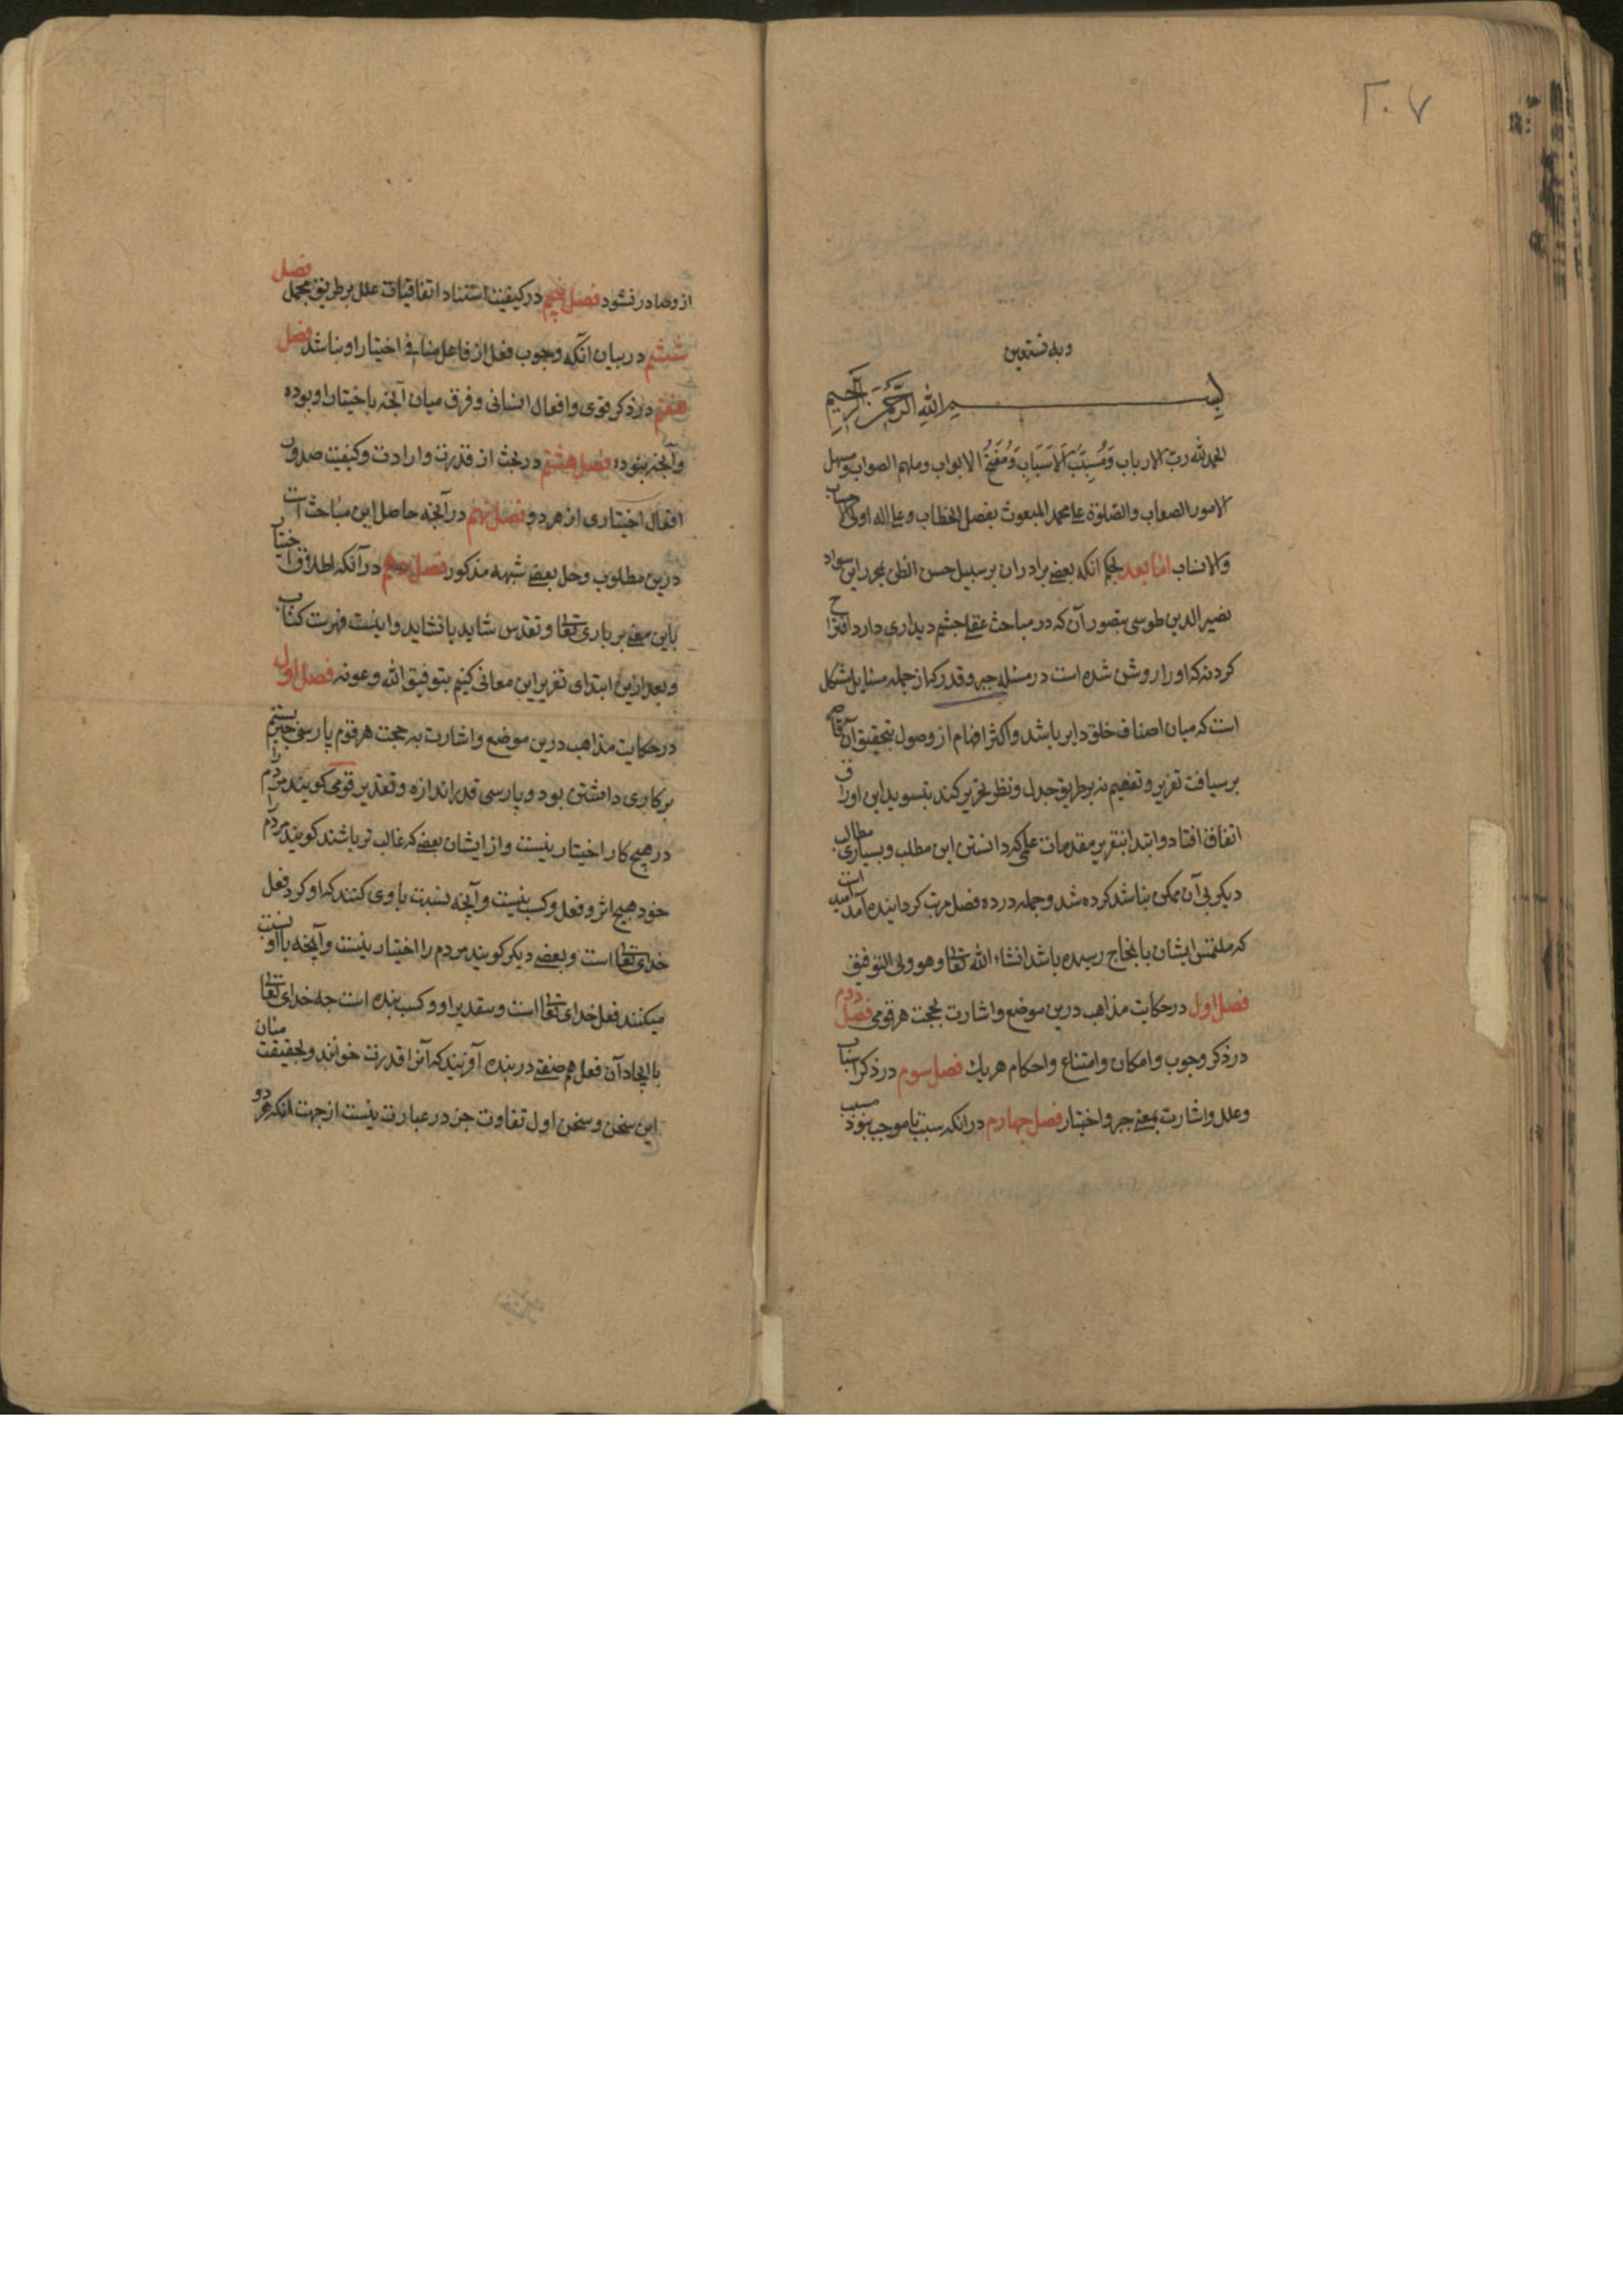 ۲۰۷
وبه نستعین
بسم الله الرحمن الرحیم
الحمدلله ربّ الارباب وَمُسَبِّبَ الاَسبَابِ وَمُفَتِّحُ الابواب وملهم الصواب ومسهل
الامور الصعاب والصلوة علی محمد المبعوث بفصل الخطاب وعلی اله اولی الاحساب
والانساب امّا بعد بحکم انکه بعضی برادران بر سبیل حسن الظن بمحرر این سواد
نصیر الدین طوسی بتصور آن که در مباحث عقلی چشم دیداری دارد اقتراح
کردند که او را روشن شده است در مسئله جبر و قدر که از جمله مسایل مشکل
است که میان اصناف خلق دایر باشد واکثر افهام از وصول بتحقیق آن قاصر
بر سیاقت تقریر و تفهیم نه بر طریق جدل و نظر تحریر کند بتسوید این اوراق
اتفاق افتاد و ابتدا بتقریر مقدمات علمی که دانستن این مطلب و بسیاری مطالب
دیکر بی آن ممکن نباشد کرده شد و جمله در ده فصل مرتب کردانیده آمد امید است
که ملتمس ایشان بانجاح رسیده باشد انشاء الله تعالی وهو ولی التوفیق
فصل اول در حکایت مذاهب درین موضع و اشارت بحجت هر قومی فصل دوم
در ذکر وجوب و امکان و امتناع و احکام هریك فصل سوم در ذکر اسباب
وعلل و اشارت بمعنی جبر و اختیار فصل چهارم در انکه سبب تا موجب نبود مسبب
ازو صادر نشود فصل پنجم در کیفیت استناد اتفاقیات علل بر طریق مجمل فصل
ششم در بیان انکه وجوب فعل از فاعل منافی اختیار او نباشد فصل
هفتم در ذکر قوی و افعال انسانی و فرق میان آنچه باختیار او بوده
وآنچه نبوده فصل هشتم در بحث از قدرت و ارادت و کیفیت صدور
افعال اختیاری از هر دو فصل نهم در آنچه حاصل این مباحث است
درین مطلوب و حل بعضی شبهه مذکور فصل دهم در آنکه اطلاق اختیار
باین معنی بر باری تعالی و تقدس شاید یا نشاید و اینست فهرست کتاب
و بعد ازین ابتدای تقریر این معانی کنیم بتوفیق الله و عونه فصل اول
در حکایت مذاهب درین موضع و اشارت به حجت هر قوم پارسی جبر بستم
بر کاری داشتن بود و پارسی قدر اندازه و تقدیر قومی کویند مردم را
در هیچ کار اختیار نیست و از ایشان بعضی که غالب تر باشند کویند مردم را
خود هیچ اثر و فعل و کسب نیست و آنچه نسبت باوی کنند که او کرد فعل
خدای تعالی است و بعضی دیکر کویند مردم را اختیار نیست و آنچه با او نسبت
میکنند فعل خدای تعالی است و بتقدیر او و کسب بنده است چه خدای تعالی
با ایجاد آن فعل هم صفتی در بنده آفریند که آنرا قدرت خوانند و بحقیقت میان
این سخن و سخن اول تفاوت جز در عبارت نیست از جهت انکه هر دو